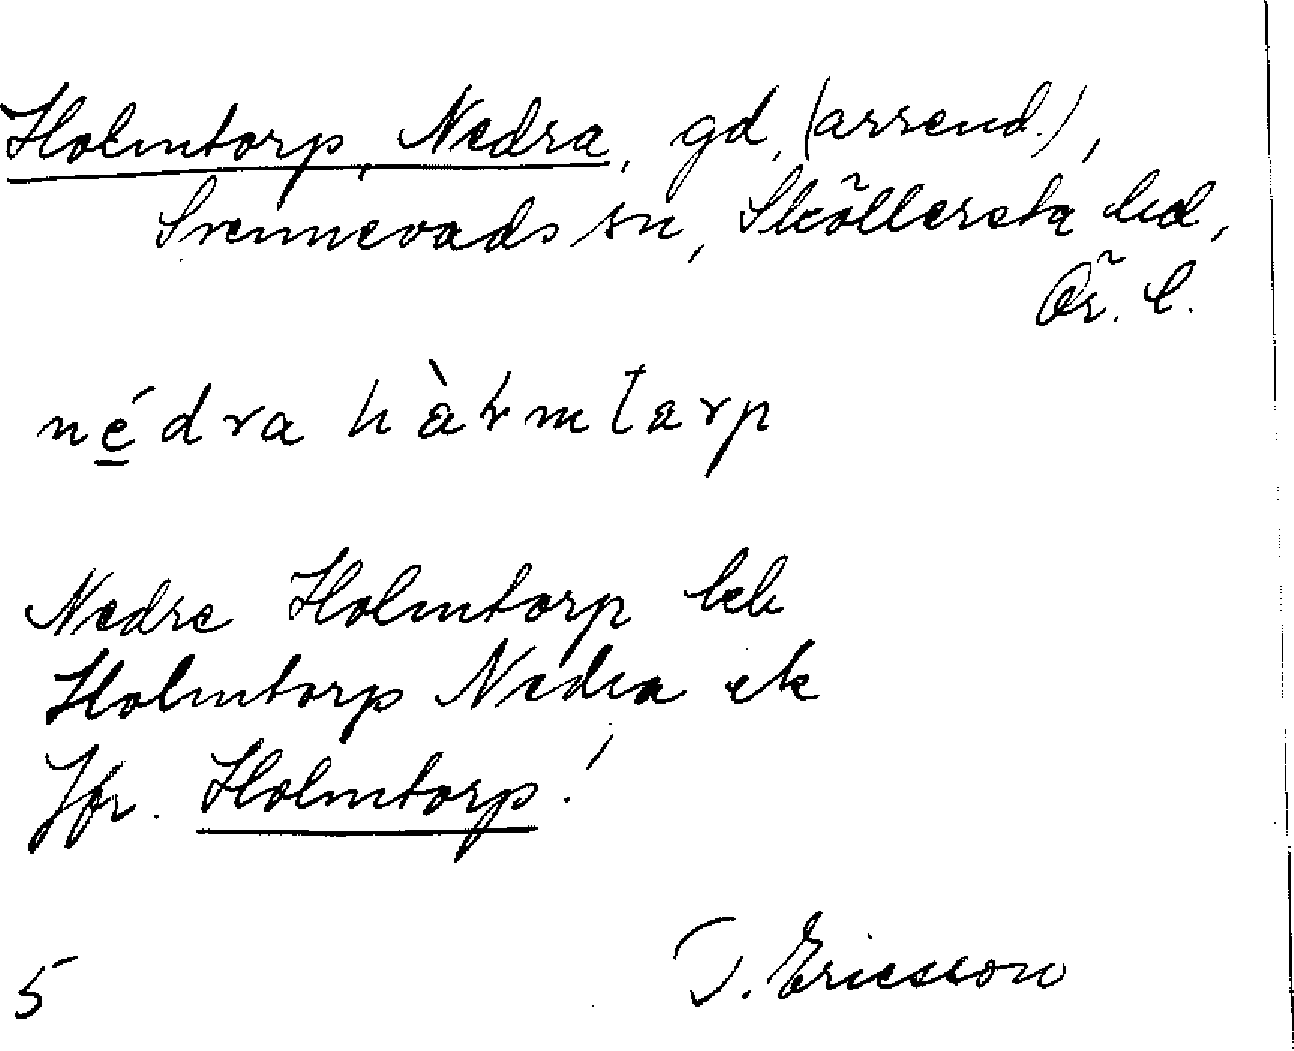 Holmtorp, Nedra, gd, (arrend.),
Svennevads sn, Sköllersta hd,
Ör. l.
nédra hàłmtarp
Nedre Holmtorp hd
Holmtorp Nedra ek
Jfr. Holmtorp!
5
J. Ericsson